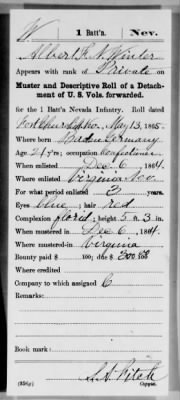 W | 1 Batt'n. | Nev.
Albert F. N. Winter
Appears with rank of Private on
Muster and Descriptive Roll of a Detach-
ment of U. S. Vols. forwarded.
for the 1 Batt'n Nevada Infantry. Roll dated
Fort Churchill Nev. May 13, 1865.
Where born Baden Germany
Age 21 y'rs; occupation Confectioner
When enlisted Dec 6, 1864.
Where enlisted Virginia Nev.
For what period enlisted 3 years.
Eyes blue; hair red
Complexion florid; height 5 ft. 3 in.
When mustered in Dec 6, 1864.
Where mustered-in Virginia
Bounty paid $ 100; due $ 300 100
Where credited
Company to which assigned C
Remarks:
Book mark:
(356g) Copyist.